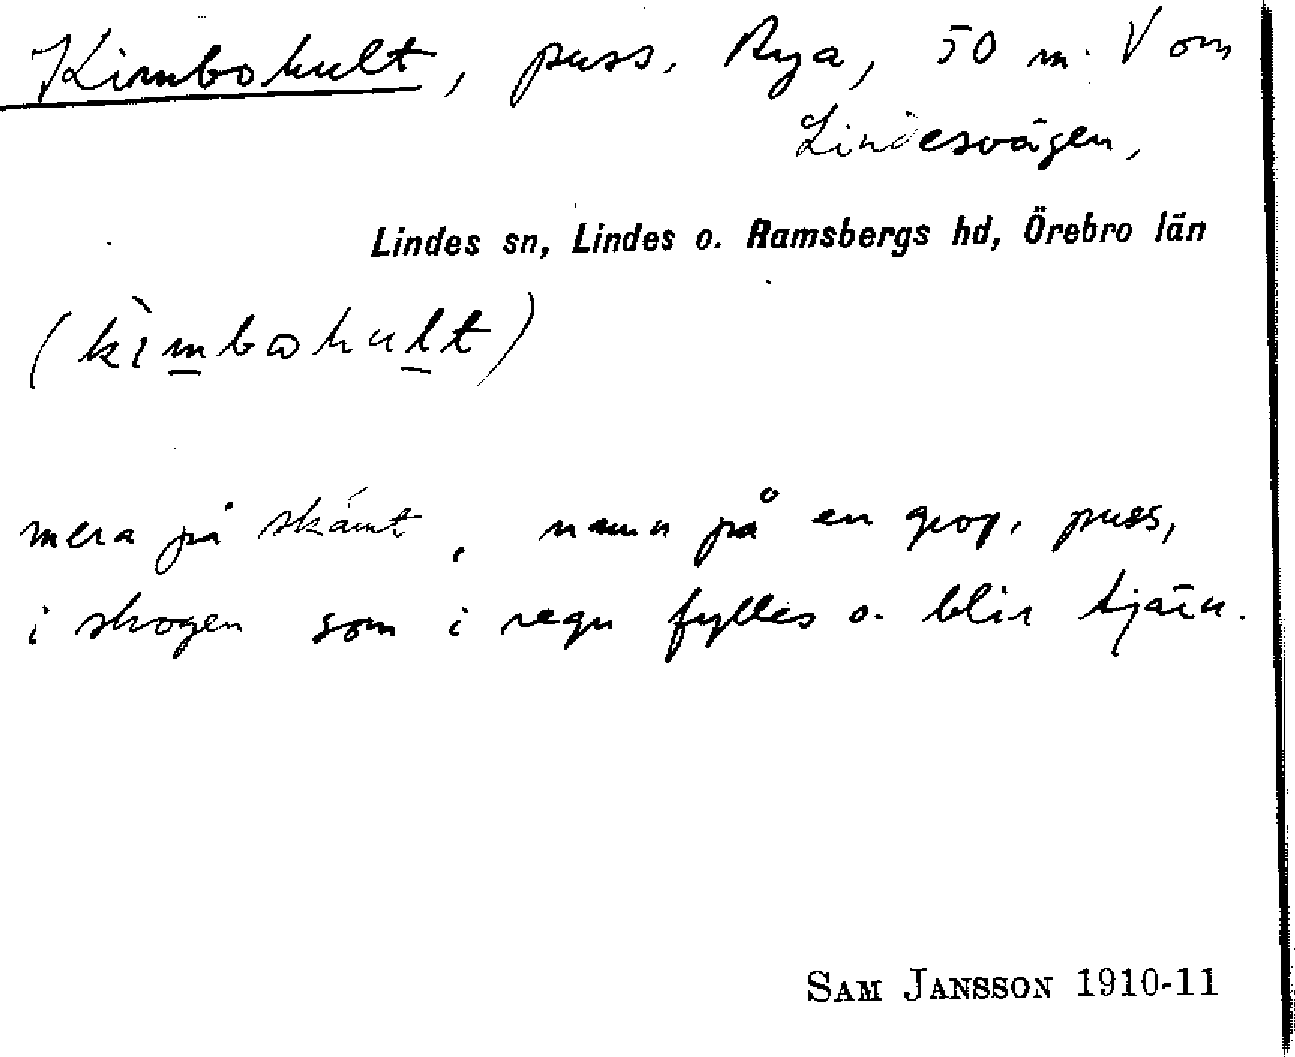 Kimbohult, puss, Rya, 50 m. V om
Lindesvägen,
Lindes sn, Lindes o. Ramsbergs hd, Örebro län
(kìmbohult)
mera på skämt, namn på en grop, puss,
i skogen som i regn fylles o. blir tjärn.
SAM JANSSON 1910-11